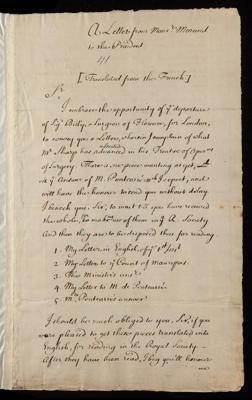 A Letter from Mons.r Morand
to the President
[Translated from the French]
Sr
I embrace the opportunity of ye departure
of Sigr a Surgeon of Florence, for London,
to convey you a Letter, wherein I complain of what
Mr. Sharp has advanced in his Treatise of Operns
of Surgery. There is one piece wanting as yet,
is ye Answer of M. I expect, and
will have the honour to send you without delay.
I beseech you, Sir, to wait till you have received
the whole, to make use of them in ye R. Society
And then they are to be disposed thus for reading.
1. My Letter, in English, of ye 1st
2. My Letter to ye Count of Maurepas.
3. This Minister's answr
4. My Letter to M. de
5. Mr answer
I should be much obliged to you, Sir, if you
were pleased to get these pieces translated into
English, for reading in the Royal Society.
After they have been read, I beg you'll honour